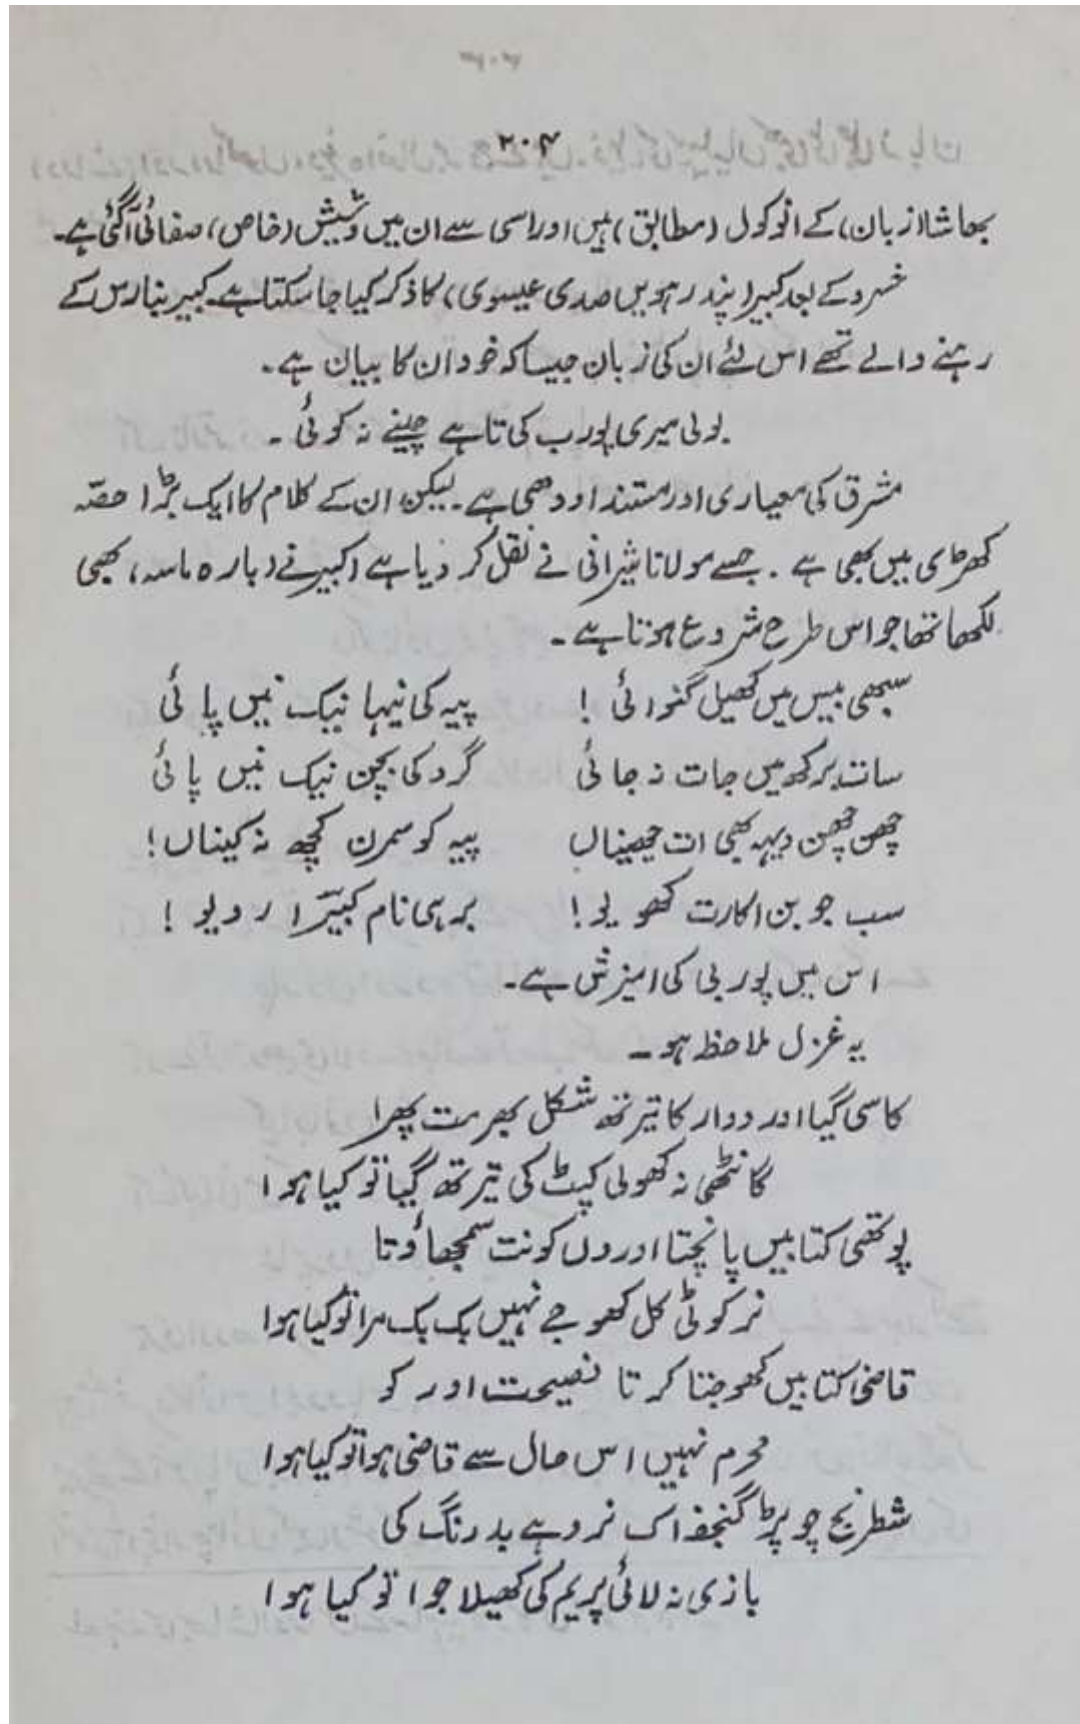 ۲۰۴
بھاشا (زبان) کے انوکول (مطابق) ہیں اور اسی سے ان میں وشیش (خاص) صفائی آگئی ہے۔
خسرو کے بعد کبیر (پندرہویں صدی عیسوی) کا ذکر کیا جا سکتا ہے۔ کبیر بنارس کے
رہنے والے تھے اس لئے ان کی زبان جیسا کہ خود ان کا بیان ہے۔
بولی میری پورب کی تا ہے چینے نہ کوئی ۔
مشرق کی معیاری اور مستند اودھی ہے۔ لیکن ان کے کلام کا ایک بڑا حصّہ
کھڑی میں بھی ہے ۔ جسے مولانا شیرانی نے نقل کر دیا ہے (کبیر نے (بارہ ماسہ، بھی
لکھا تھا جو اس طرح شروع ہوتا ہے ۔
سبھی بیس میں کھیل گنوائی ! پیہ کی نیہا نیک نیں پائی
سات برکھ میں جات نہ جائی گرو کی بچن نیک نیں پائی
چھن چھن دیہہ بھی ات چھیناں پیہ کو سمرن کچھ نہ کیناں !
سب جوبن اکارت کھویو ! برہی نام کبیرا رویو !
اس میں پوربی کی امیزش ہے۔
یہ غزل ملاحظہ ہو ۔
کاسی گیا اور دوار کا تیرتھ شکل بھرمت پھرا
گانٹھی نہ کھولی کپٹ کی تیرتھ گیا تو کیا ہوا
پوتھی کتابیں پانچتا اوروں کو نت سمجھاؤتا
نرکوٹی کل کھوجے نہیں بک بک مرا تو کیا ہوا
قاضی کتابیں کھوجتا کرتا نصیحت اور کو
محرم نہیں اس حال سے قاضی ہوا تو کیا ہوا
شطرنج چوپڑ گنجفہ اک نرد ہے بدرنگ کی
بازی نہ لائی پریم کی کھیلا جوا تو کیا ہوا